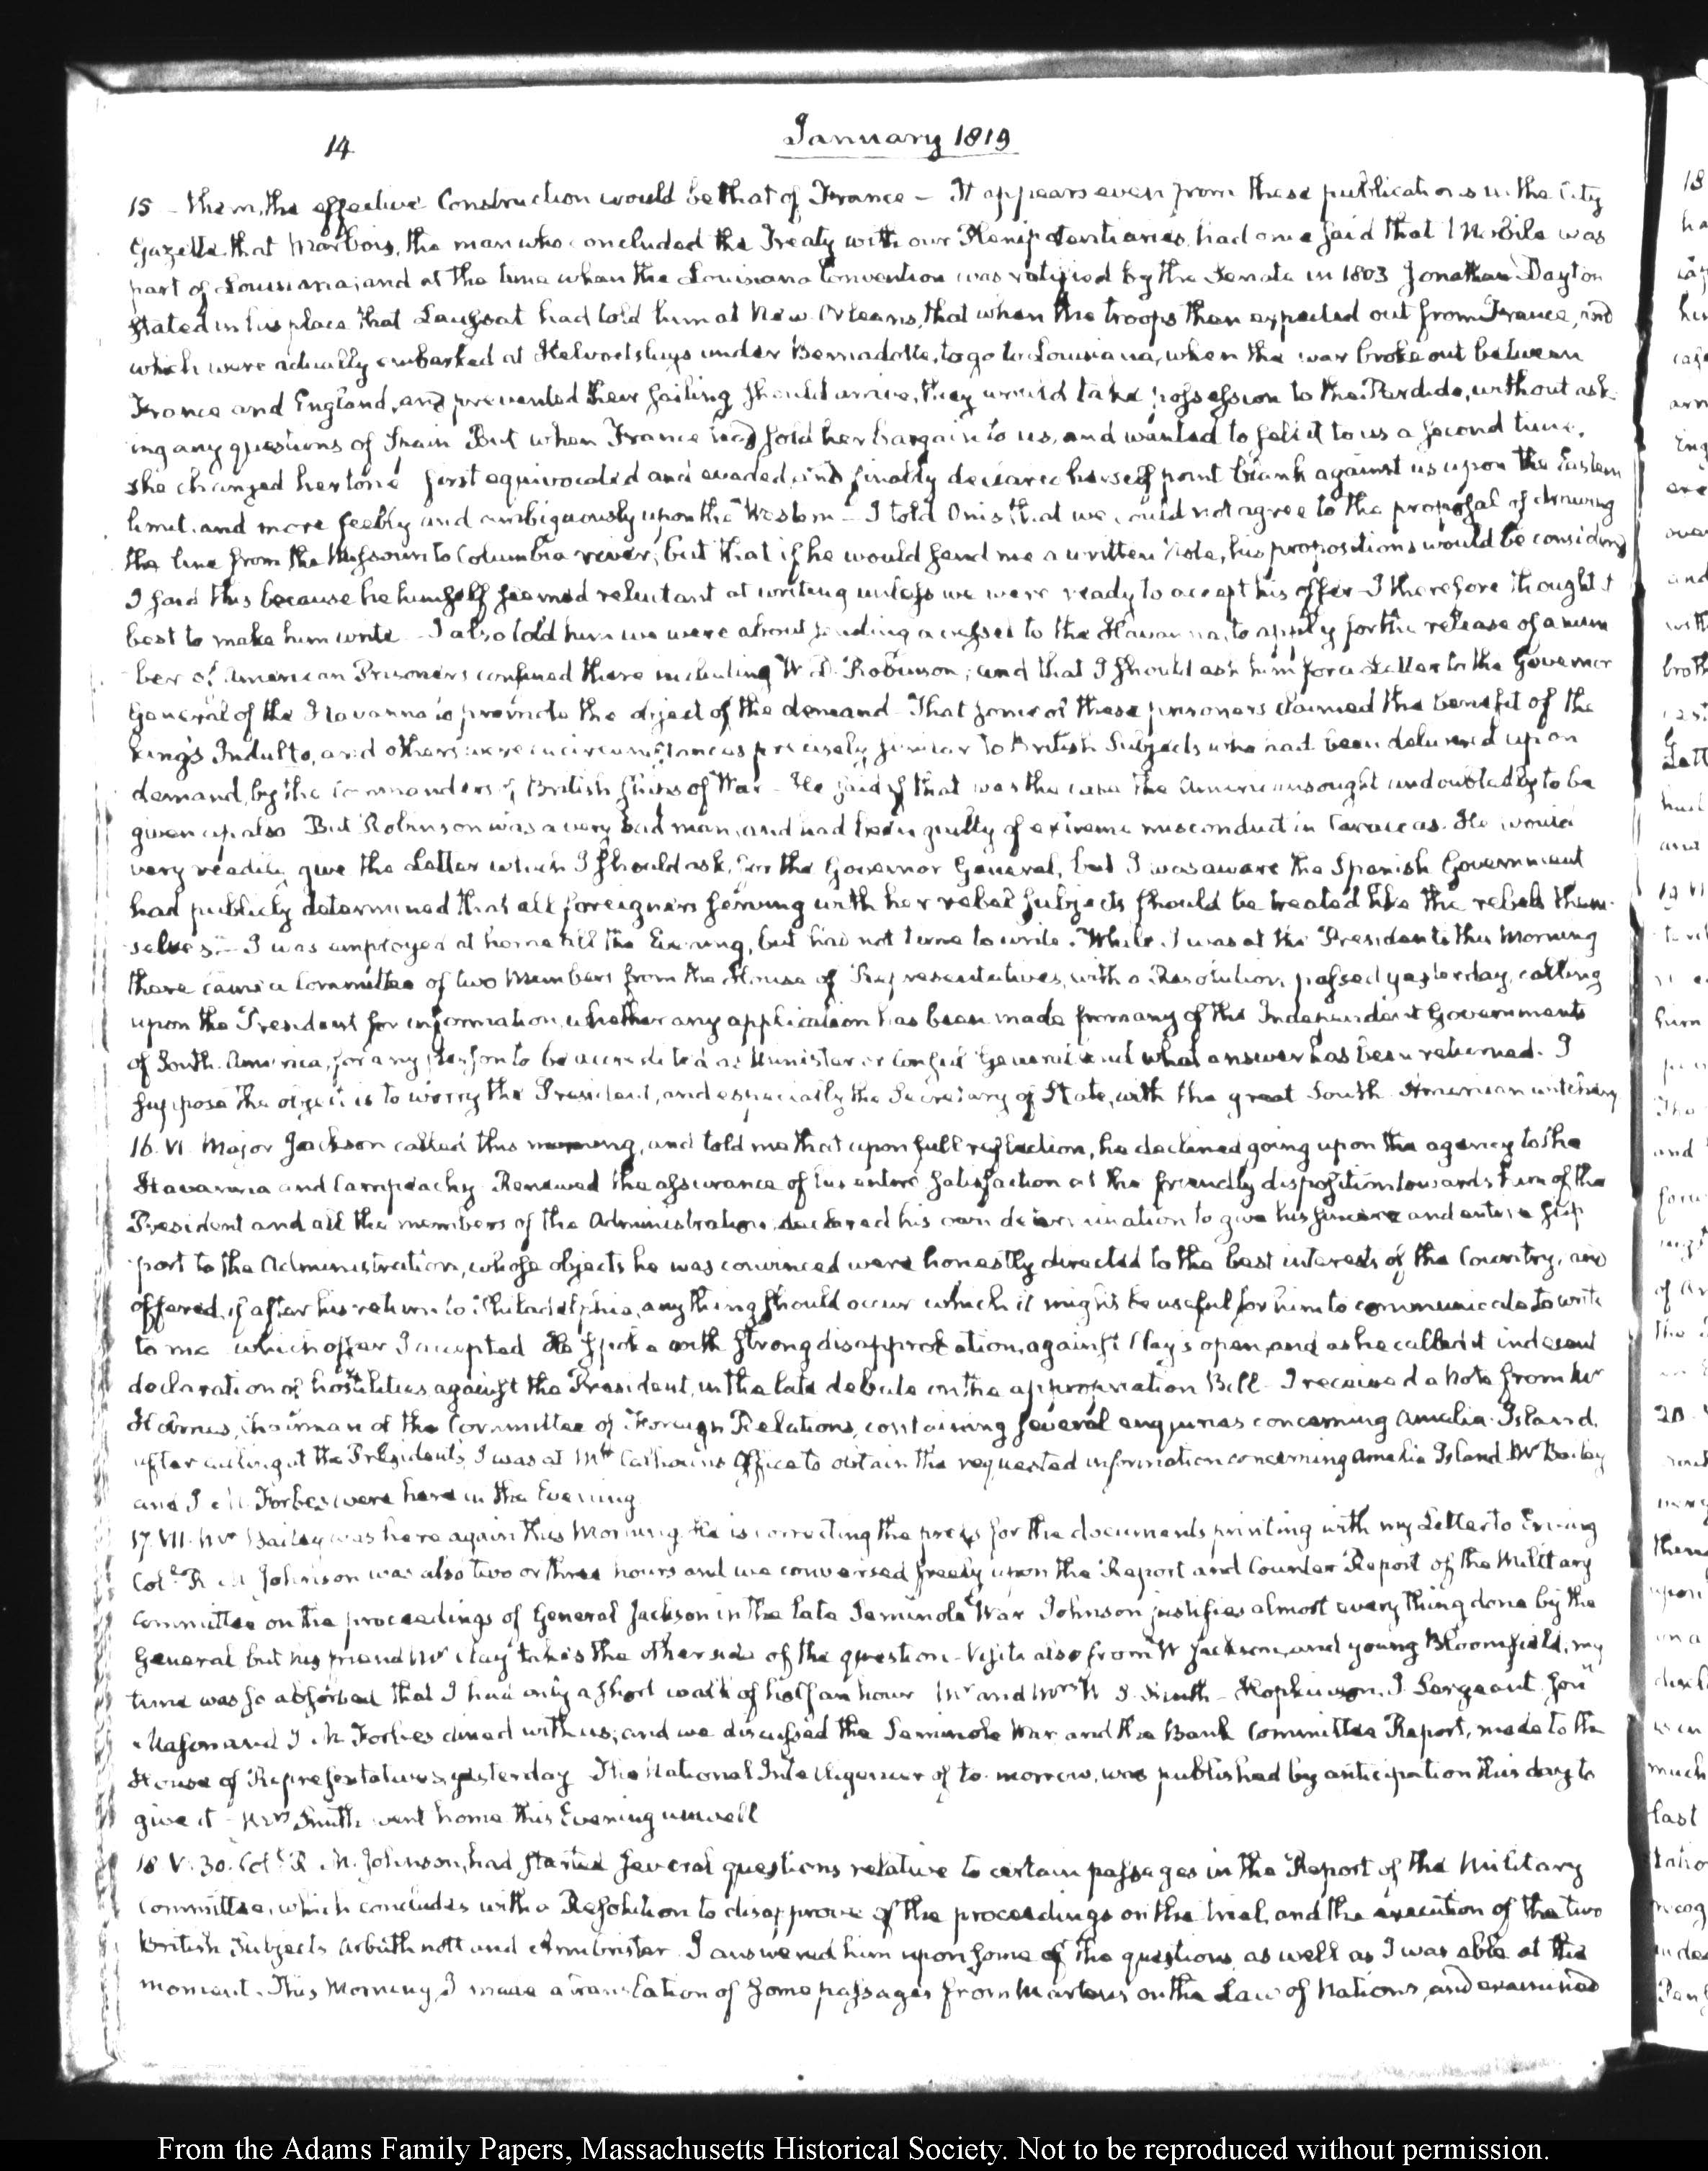 14
January 1819
15 - them, the effective Construction would be that of France - It appears even from these publications in the City
Gazette that Marbois, the man who concluded the Treaty with our Plenipotentiaries, had once said that Mobile was
part of Louisiana; and at the time when the Louisiana Convention was ratified by the Senate in 1803 Jonathan Dayton
stated in his place that Laussat had told him at New Orleans, that when the troops then expected out from France, and
which were actually embarked at Helvoetsluys under Bernadotte, to go to Louisiana, when the war broke out between
France and England, and prevented their sailing should arrive, they would take possession to the Perdido, without ask-
ing any questions of Spain But when France had sold her bargain to us, and wanted to sell it to us a second time,
she changed her tone first equivocated and evaded, and finally declared herself point blank against us upon the Eastern
limit, and more feebly and ambiguously upon the Western - I told Onis that we could not agree to the proposal of drawing
the line from the Missouri to Columbia river; but that if he would send me a written Note, his propositions would be considered
I said this because he himself seemed reluctant at writing unless we were ready to accept his offer - I therefore thought it
best to make him write - I also told him we were about sending a vessel to the Havanna, to apply for the release of a num
ber of American Prisoners confined there including W. D. Robinson; and that I should ask him for a Letter to the Governor
General of the Havanna to promote the object of the demand - That some of these prisoners claimed the benefit of the
king's Indulto, and others were in circumstances precisely similar to British Subjects who had been delivered upon
demand, by the Commanders of British Ships of War - He said if that was the case the Americans ought undoubtedly to be
given up also But Robinson was a very bad man, and had been guilty of extreme misconduct in Caraccas. He would
very readily give the Letter which I should ask, for the Governor General, but I was aware the Spanish Government
had publicly determined that all foreigners serving with her rebel subjects should be treated like the rebels them-
selves. - I was employed at home till the Evening, but had not time to write. While I was at the President's this Morning
there came a Committee of two Members from the House of Representatives, with a Resolution, passed yesterday, calling
upon the President for information, whether any application has been made from any of the Independent Governments
of South America, for any person to be accredited as Minister or Consul General and what answer has been returned. I
suppose the object is to worry the President, and especially the Secretary of State, with the great South American witchery
16. VI. Major Jackson called this morning, and told me that upon full reflection, he declined going upon the agency to the
Havanna and Campeachy Renewed the assurance of his entire satisfaction at the friendly disposition towards him of the
President and all the members of the Administration, declared his own determination to give his sincere and entire sup
port to the Administration, whose objects he was convinced were honestly directed to the best interests of the Country, and
offered, if after his return to Philadelphia, any thing should occur which it might be useful for him to communicate to write
to me which offer I accepted He spoke with strong disapprobation, against Clay's open, and as he called it indecent
declaration of hostilities, against the President, in the late debate on the appropriation Bill - I received a Note from Mr
Holmes, Chairman of the Committee of Foreign Relations, containing several enquiries concerning Amelia Island.
after calling at the President's, I was at Mr Calhoun's Office to obtain the requested information concerning Amelia Island Mr Bailey
and J. M. Forbes were here in the Evening
17. VII. Mr Bailey was here again this Morning. He is correcting the press for the documents printing with my Letter to Erving
Coll. R. M. Johnson was also two or three hours and we conversed freely upon the Report and Counter Report of the Military
Committee on the proceedings of General Jackson in the late Seminole War Johnson justifies almost every thing done by the
General but his friend Mr Clay takes the other side of the question - Visits also from W Jackson, and young Bloomfield, my
time was so absorbed that I had only a short walk of half an hour Mr and Mrs W. S. Smith - Hopkinson, J. Sergeant. Jon
Mason and J. M. Forbes dined with us; and we discussed the Seminole War and the Bank Committee Report, made to the
House of Representatives yesterday The National Intelligencer of to-morrow, was published by anticipation this day to
give it - Mrs Smith went home this Evening unwell
18 V. 30. Coll. R. M. Johnson, had started several questions relative to certain passages in the Report of the Military
Committee, which concludes with a Resolution to disapprove of the proceedings on the trial, and the execution of the two
British Subjects Arbuthnott and Ambrister I answered him upon some of the questions as well as I was able at the
moment. This Morning I made a translation of some passages from Martens on the Law of Nations, and examined
From the Adams Family Papers, Massachusetts Historical Society. Not to be reproduced without permission.